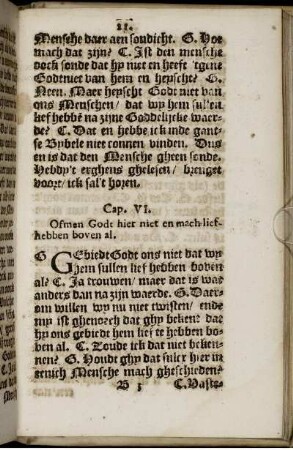 21.
Mensche daer aen sondicht. G. Hoe
mach dat zijne? C. Ist den mensche
oock sonde dat hy niet en heeft 'tgene
Godt niet van hem en heyscht? G.
Neen. Maer heyscht Godt niet van
ons Menschen/ dat wy hem sullen
lief hebbē na zijne Goddelijcke waer-
de? C. Dat en hebbe ick inde gant-
se Bybele niet connen vinden. Dus
en is dat den Mensche gheen sonde.
Hebdy't erghens ghelesen/ brenget
voort/ ick sal't horen.
Cap. VI.
Ofmen Godt hier niet en mach lief-
hebben boven al.
G GEbiedt Godt ons niet dat wy
hem sullen lief hebben boven
al? C. Ja trouwen/ maer dat is wat
anders dan na zijn waerde. G. Daer-
om willen wy nu niet twisten/ ende
my ist ghenoech dat ghy bekent dat
hy ons gebiedt hem lief te hebben bo-
ven al. C. Zoude ick dat niet beken-
nen? G. Houdt ghy dat sulcx hier in
eenich Mensche mach gheschieden?
B 3 C. Vaste-